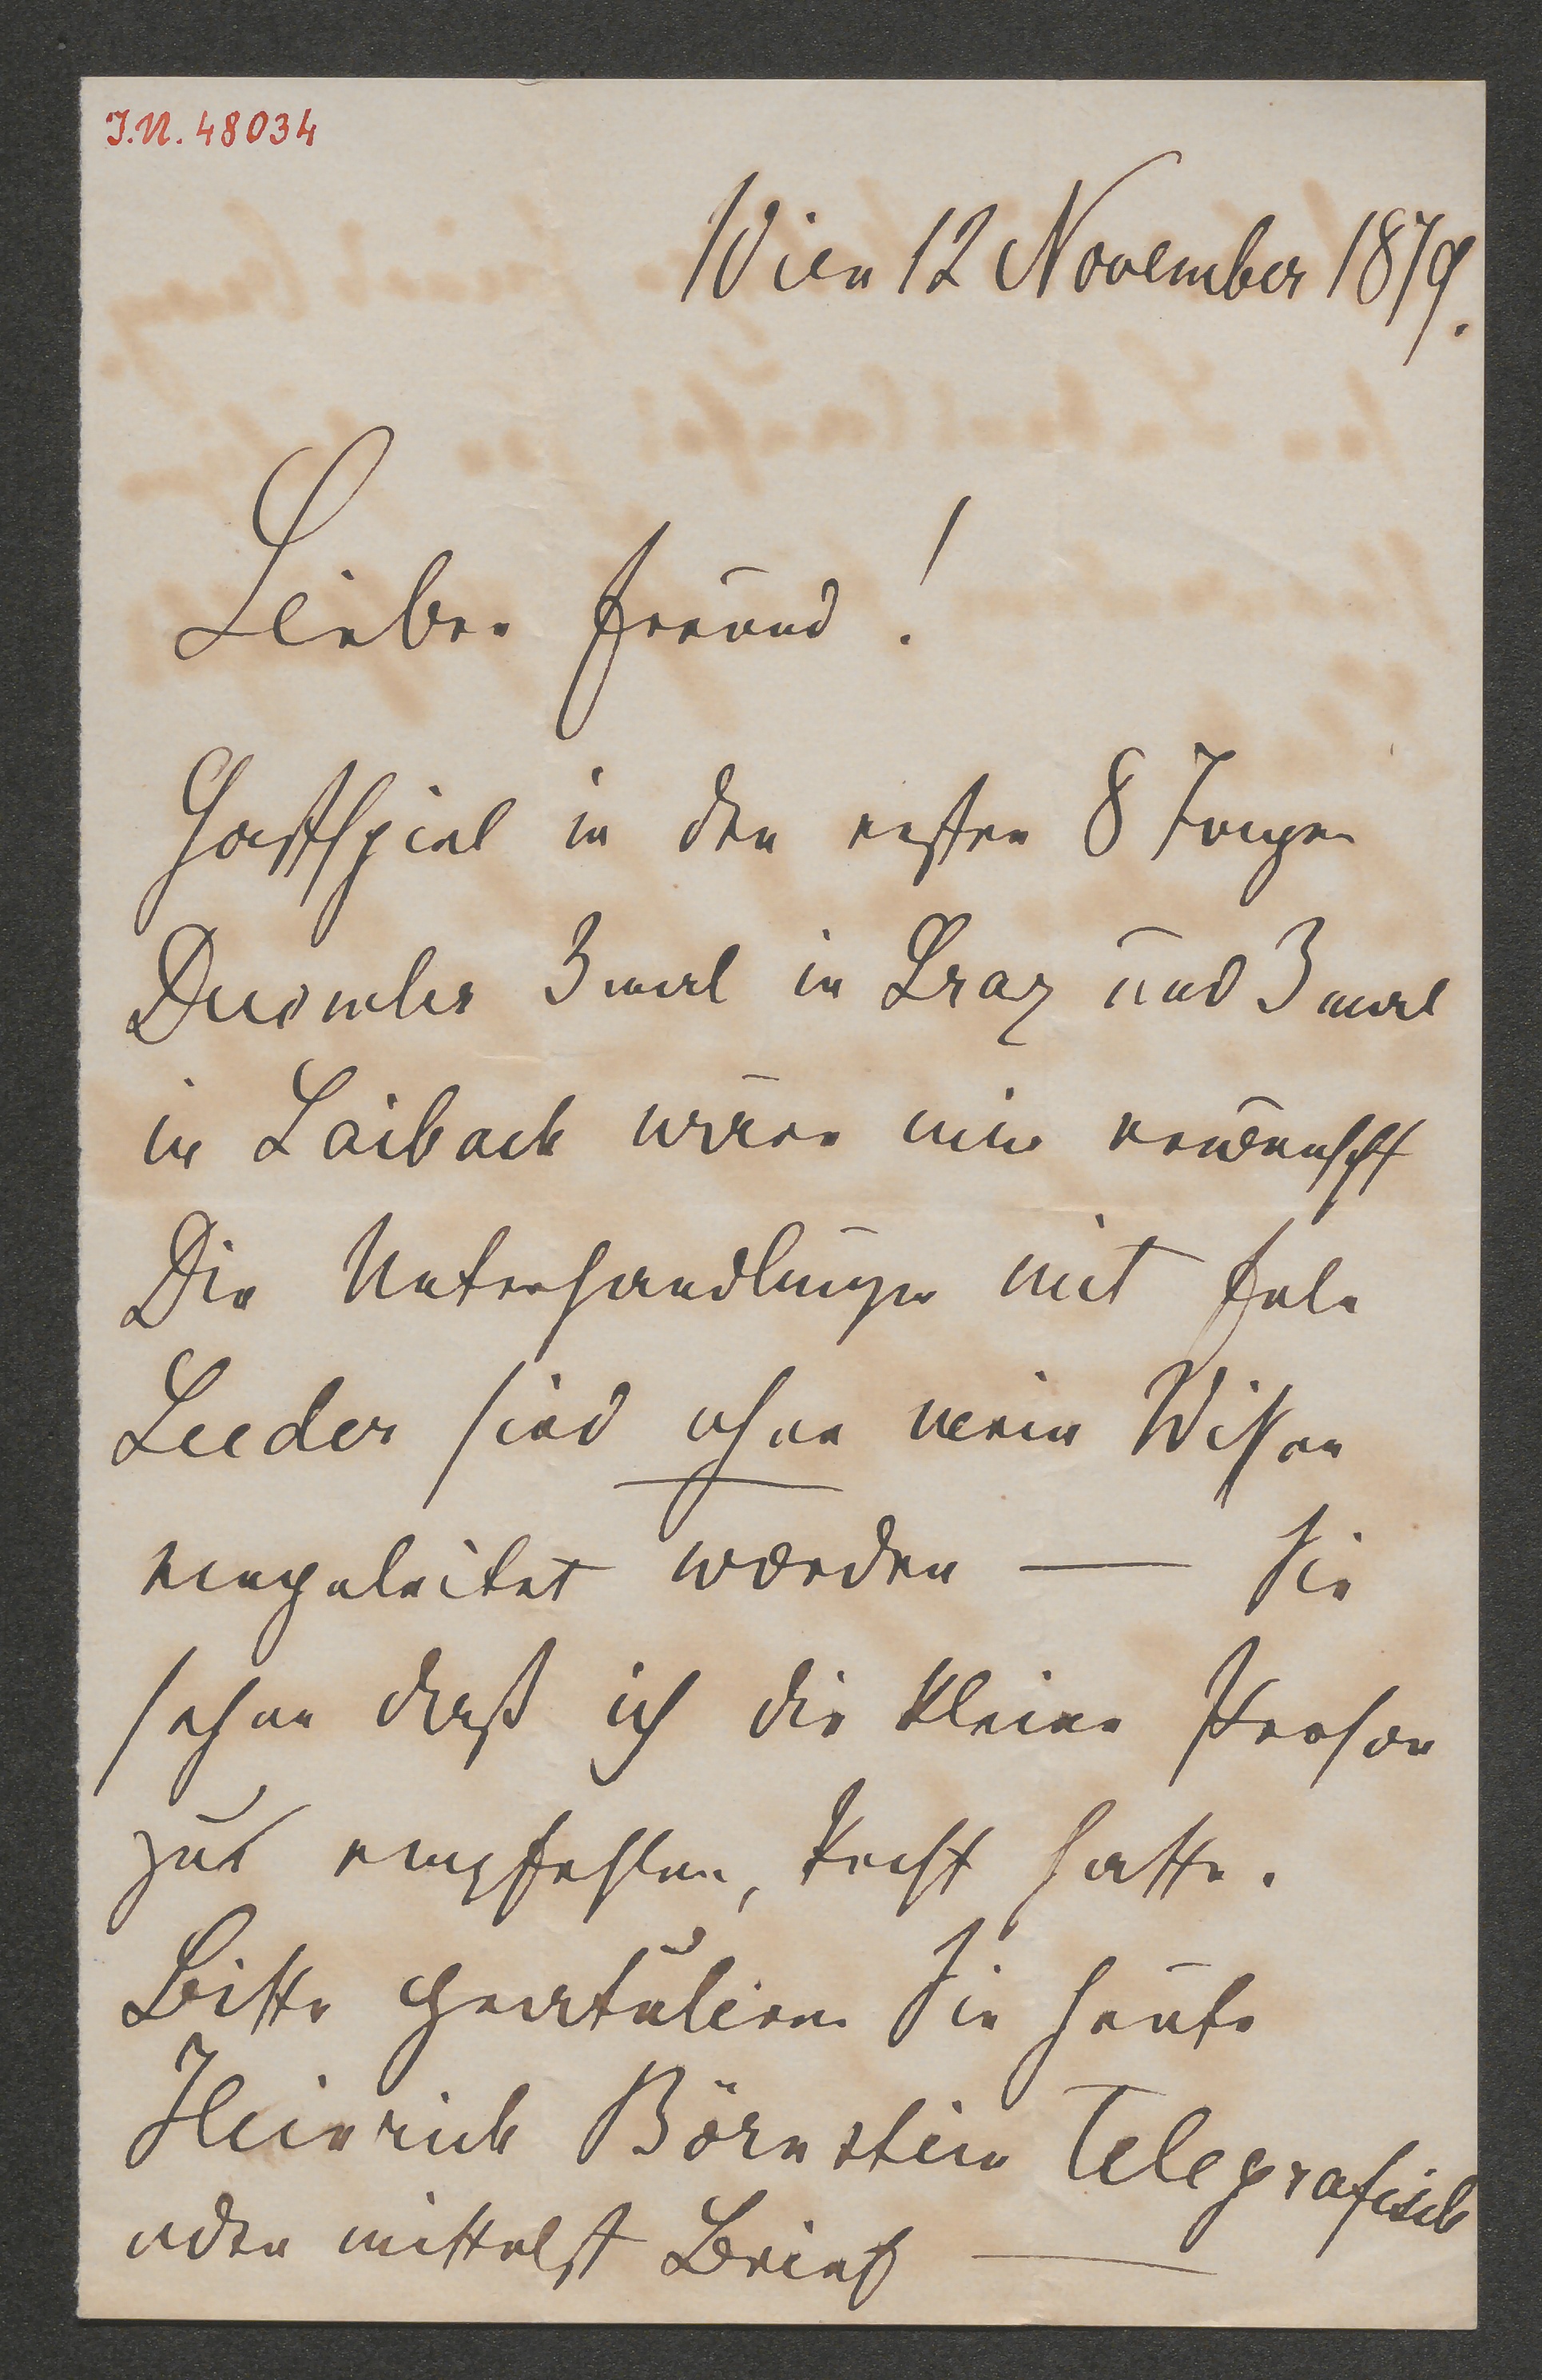 I.N. 48034
Wien 12 November 1879.
Lieber Freund!
Gastspiel in den ersten 8 Tagen
December 3 mal in Graz und 3 mal
in Laibach wäre mir erwünscht
Die Unterhandlungen mit Frln
Leeder sind ohne mein Wissen
eingeleitet worden — Sie
sehen daß ich die kleine Person
zu empfehlen, Recht hatte.
Bitte gratulieren Sie heute
Heinrich Börnstein Telegrafisch
oder mittelst Brief —